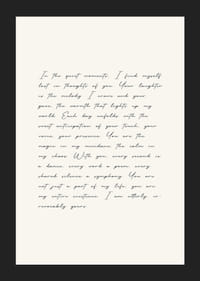 In the quiet moments, I find myself
lost in thoughts of you. Your laughter
is the melody I crave and your
gaze, the warmth that lights up my
world. Each day unfolds with the
sweet anticipation of your touch, your
voice, your presence. You are the
magic in my mundane, the calm in
my chaos. With you, every second is
a dance, every word a poem, every
shared silence a symphony. You are
not just a part of my life, you are
my entire existence. I am utterly ir-
revocably yours.